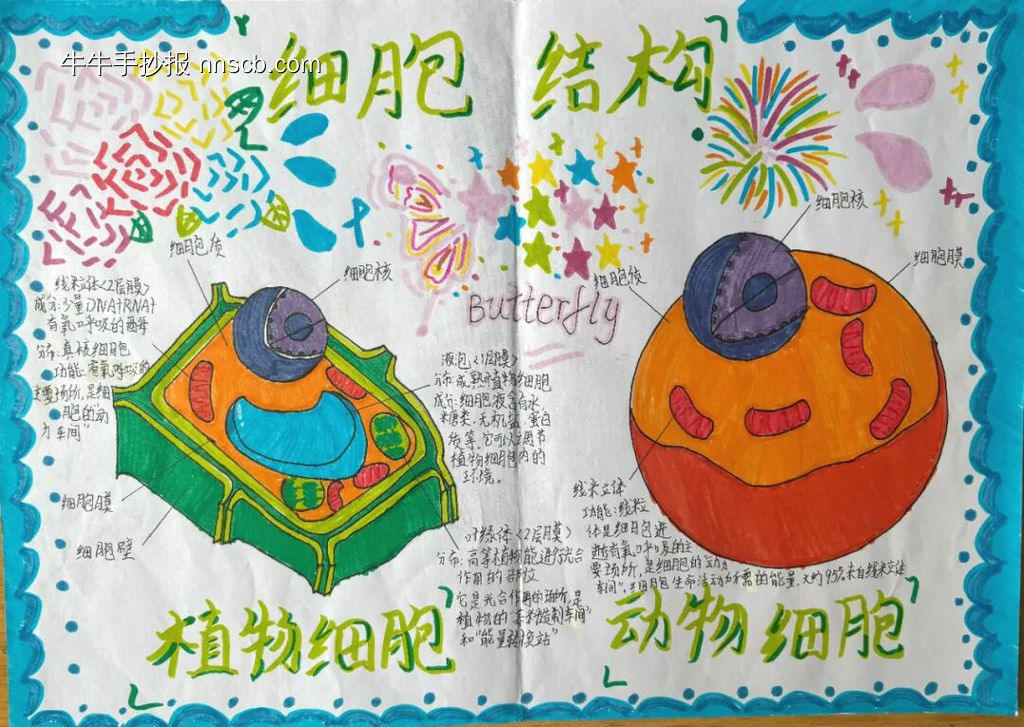 牛牛手抄报 nnscb.com
细胞 结构
细胞质
细胞核
线粒体<2层膜>
成分:少量DNA+RNA+
有氧呼吸的酶等
分布:真核细胞
功能:有氧呼吸的
主要场所,是细
胞的动
力车间”
细胞膜
细胞壁
Butterfly
液泡<1层膜>
分布:成熟植物细胞
成分:细胞液含有水
糖类、无机盐、蛋白
质等。它可以调节
植物细胞内的
环境。
叶绿体<2层膜>
分布:高等植物能进行光合
作用的部位
它是光合作用的场所,是
植物的“养料制造车间”
和“能量转换站”
植物细胞
细胞核
细胞膜
细胞质
线粒立体
功能:线粒立
体是细胞进
进行有氧呼吸的主
要场所,是细胞的“动力
车间”。细胞生命活动所需的能量,大约95%来自线粒立体
动物细胞